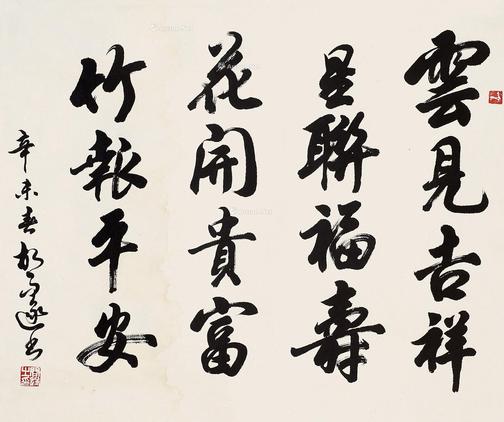 雲見吉祥
星聯福壽
花開貴富
竹報平安
辛未春